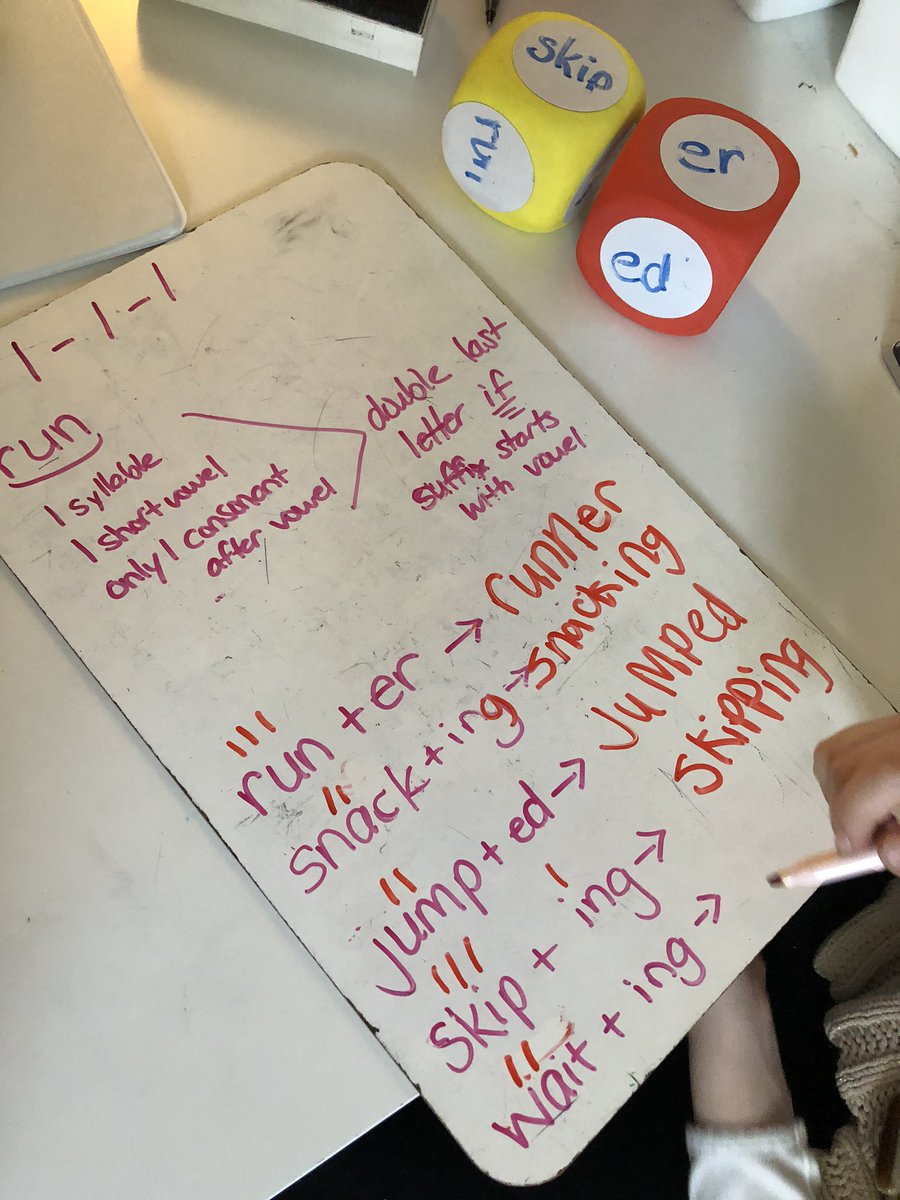 skip
run
er
ed
1-1-1
run
1 syllable
1 short vowel
only 1 consonant
after vowel
double last
letter if
suffix starts
with vowel
run + er → runner
snack + ing → snacking
jump + ed → jumped
skip + ing → skipping
wait + ing →